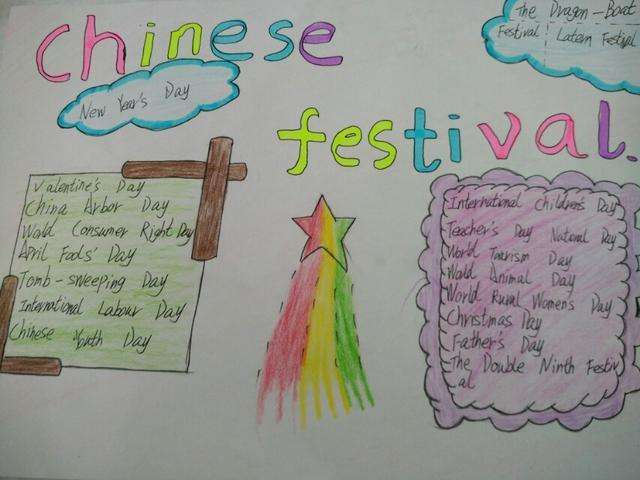 Chinese
The Dragon-Boat
Festival Latern Festival
New Year's Day
festival.
Valentine's Day
China Arbor Day
Wold Consumer Right Day
April Fools' Day
Tomb-sweeping Day
International Labour Day
Chinese Youth Day
International Children's Day
Teacher's Day National Day
World Tourism Day
World Animal Day
World Rural Women's Day
Christmas Day
Father's Day
The Double Ninth Festiv
al